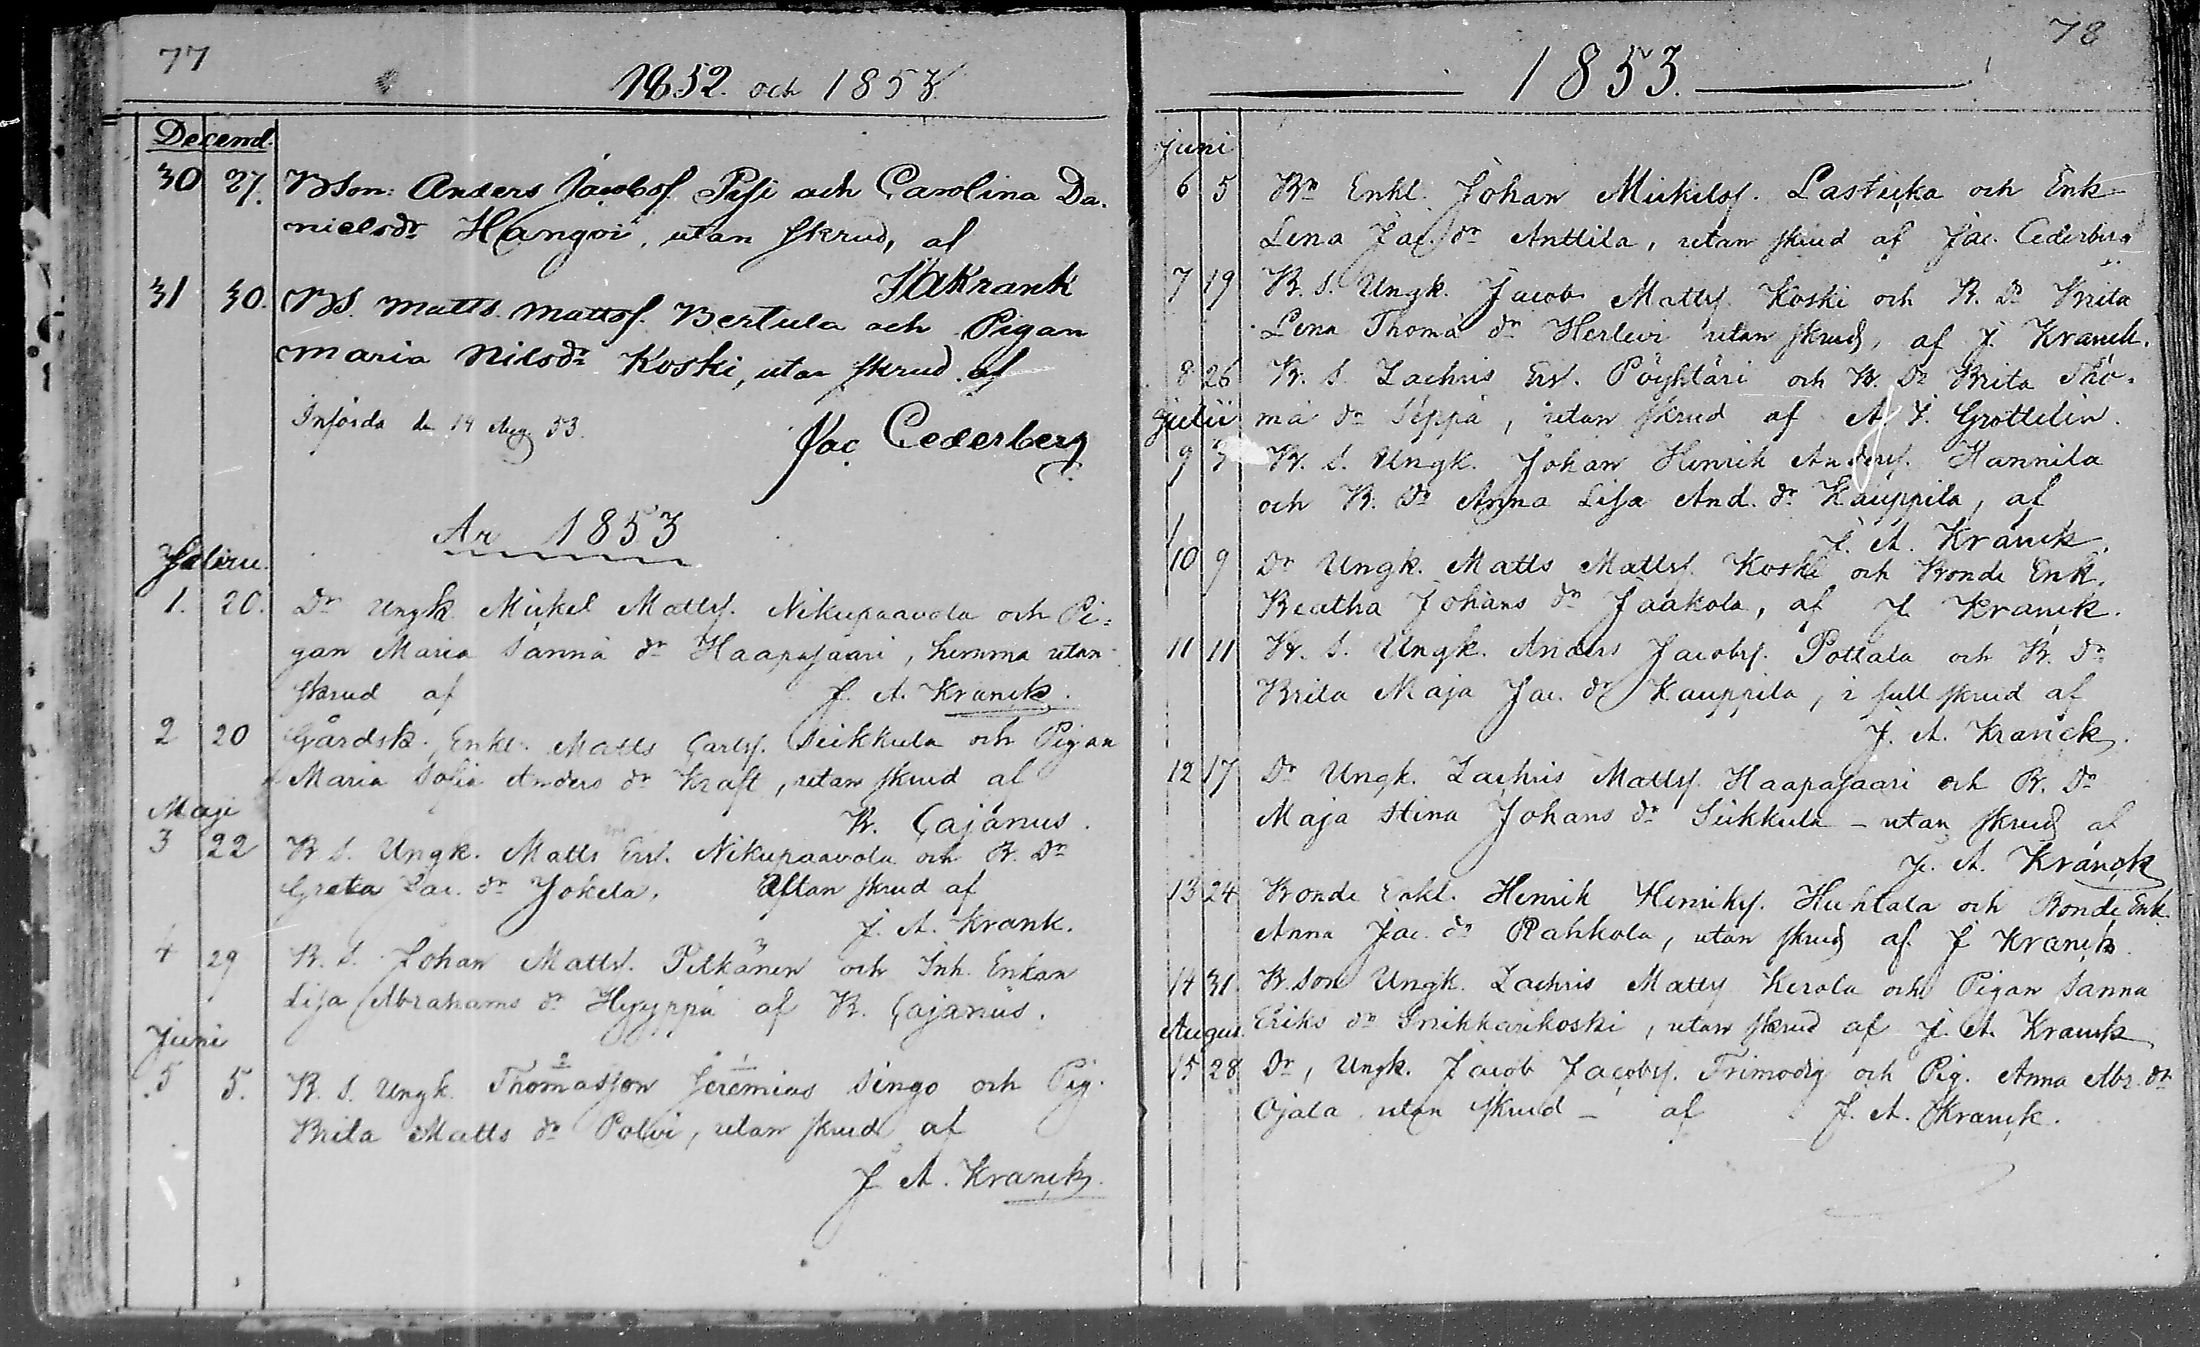 77
1852 och 1853.
Decemb.
30 27. BSon: Anders Jacobsſ. Pesſi och Carolina Da-
nielsdr Hangvi, utan skrud, af
JAKrank
31 30. BS. Matts Mattsſ. Bertula och Pigan
Maria Nilsdr Koski, utan skrud af
Införda d. 14 Aug 53.
Jac Cederberg
År 1853
1. 20. Dr Ungk. Mickel Mattsſ. Nikupaavola och Pi-
gan Maria Sanna dr Haapaſaari, hemma utan
skrud af J. A. Kranck.
2 20 Gårdsk. Enkl. Matts Carlsſ. Siikkula och Pigan
Maria Sofia Anders dr Kraft, utan skrud af
Maji
K. Cajanus.
3 22 B S. Ungk. Matts Ersſ. Nikupaavola och B. Dr
Greta Jac. dr Jokela. Utan skrud af
J. A. Krank.
4 29 B. S. Johan Mattsſ. Pitkänen och Inh. Enkan
Lisa Abrahams dr Hyyppä af K. Cajanus.
Juni
5 5. B. S. Ungk. Thomasſon Jeremias Singo och Pig.
Brita Matts dr Polvi, utan skrud af
J. A. Kranck.
78
1853.
Juni
6 5 Bn Enkl. Johan Mickelsſ. Lastikka och Enk
Lena Jac. dr Anttila, utan skrud af Jac. Cederberg
7 19 B. S. Ungk. Jacob Mattsſ. Koski och B. Dr Brita
Lena Thoma dr Herlevi utan skrud, af J. Kranck.
8 26 B. S. Zachris Ersſ. Pöyhtäri och B. Dr Brita Tho-
Julii ma dr Seppä, utan skrud af A J. Grottelin.
9 3 B. S. Ungk. Johan Henrik Andersſ. Hannila
och B. Dr Anna Lisa And. dr Kauppila, af
J. A. Kranck.
10 9 Dr Ungk. Matts Mattsſ. Koski och Bonde Enk.
Beatha Johans dr Jaakola, af J. Kranck.
11 11 B. S. Ungk. Anders Jacobsſ. Pottala och B. dr
Brita Maja Jac. dr Kauppila, i full skrud af
J. A. Kranck.
12 17 Dr Ungk. Zachris Mattsſ. Haapaſaari och B. Dr
Maja Stina Johans dr Siikkula - utan skrud af
J. A. Kranck
13 24 Bonde Enkl. Henrik Henriksſ. Huhtala och Bonde Enk.
Anna Jac. dr Pahkola, utan skrud af J Kranck
14 31. B. Son Ungk. Zachris Mattsſ Kerola och Pigan Sanna
Augus. Eriks dr Snikkarikoski, utan skrud af J. A. Kranck
15 28 Dr, Ungk. Jacob Jacobsſ. Frimodig och Pig. Anna Abr. dr
Ojala utan skrud - af J. A. Kranck.